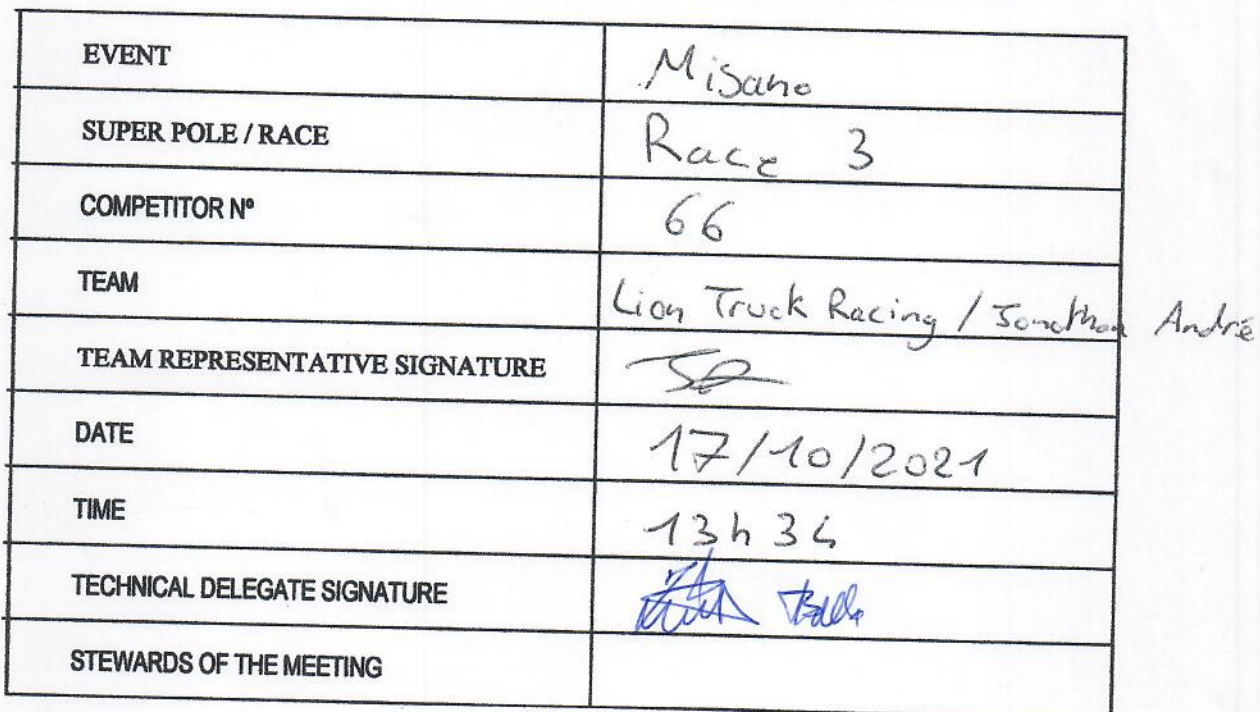 EVENT Misano
SUPER POLE / RACE Race 3
COMPETITOR Nº 66
TEAM Lion Truck Racing / Jonathan André
TEAM REPRESENTATIVE SIGNATURE
DATE 17/10/2021
TIME 13h34
TECHNICAL DELEGATE SIGNATURE
STEWARDS OF THE MEETING